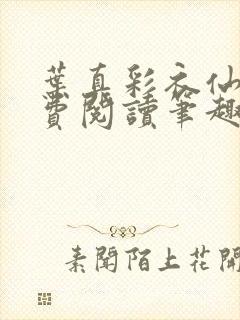 葉真彩衣仙
費閱讀筆趣
素聞陌上花開